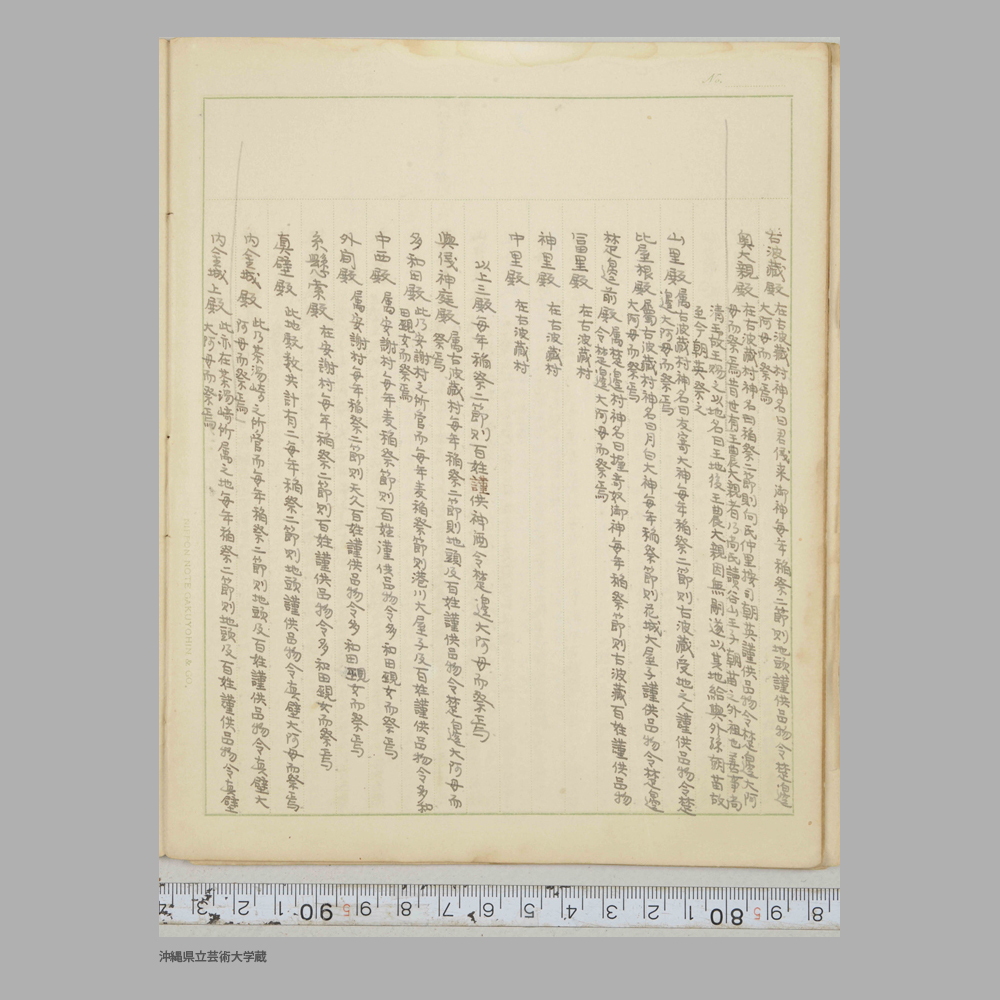 No.
古波藏殿 在古波藏村神名曰君儀来御神每年稲祭二節則地頭謹供品物令楚邊
大阿母而祭焉
奥大親殿 在古波藏村神名曰稲祭二節則向氏仲里按司朝英謹供品物令楚邊大阿
母而祭焉昔世有王農大親者乃向氏讓谷山王子朝苗之外祖也
清王故王賜之以地名曰王地後王農大親因無嗣遂以其地給與外孫朝苗故
至今朝英祭之
山里殿 屬古波藏村神名曰友寄大神每年稲祭二節則古波藏受地之人謹供品物令楚
邊大阿母而祭焉
比屋根殿 屬古波藏村神名曰月白大神每年稲祭節則花城大屋子謹供品物令楚邊
大阿母而祭焉
楚邊前殿 屬楚邊村神名曰握奇奴御神每年稲祭節則古波藏百姓謹供品物
令楚邊大阿母而祭焉
富里殿 在古波藏村
神里殿 在古波藏村
中里殿 在古波藏村
以上三殿每年稲祭二節則百姓謹供神酒令楚邊大阿母而祭焉
與儀神庭殿 屬古波藏村每年稲祭二節則地頭及百姓謹供品物令楚邊大阿母而
祭焉
多和田殿 此乃安謝村之所官而每年麦稲祭節則港川大屋子及百姓謹供品物令多和
田覡女而祭焉
中西殿 屬安謝村每年麦稲祭節則百姓謹供品物令多和田覡女而祭焉
外間殿 屬安謝村每年稲祭二節則天久百姓謹供品物令多和田覡女而祭焉
糸懸業殿 在安謝村每年稲祭二節則百姓謹供品物令多和田覡女而祭焉
真壁殿 此地殿数共計有二每年稲祭二節則地頭謹供品物令真壁大阿母而祭焉
内金城殿 此乃茶湯崎之所官而每年稲祭二節則地頭及百姓謹供品物令真壁大
阿母而祭焉
内金城上殿 此亦在茶湯崎所屬之地每年稲祭二節則地頭及百姓謹供品物令真壁
大阿母而祭焉
NIPPON NOTE GAKUYOHIN & CO.
8 5 9 80 1 2 3 4 5 6 7 8 5 9 90 1 2 3 4
沖縄県立芸術大学蔵